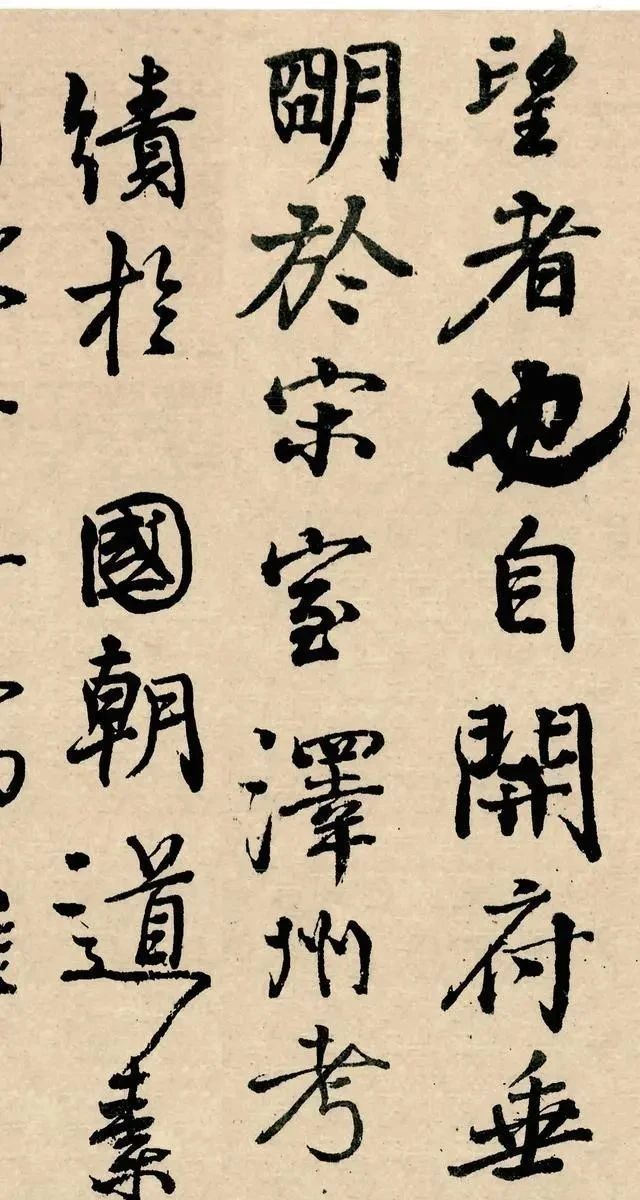 望者也自開府垂
明於宋室澤州考
績於國朝道素